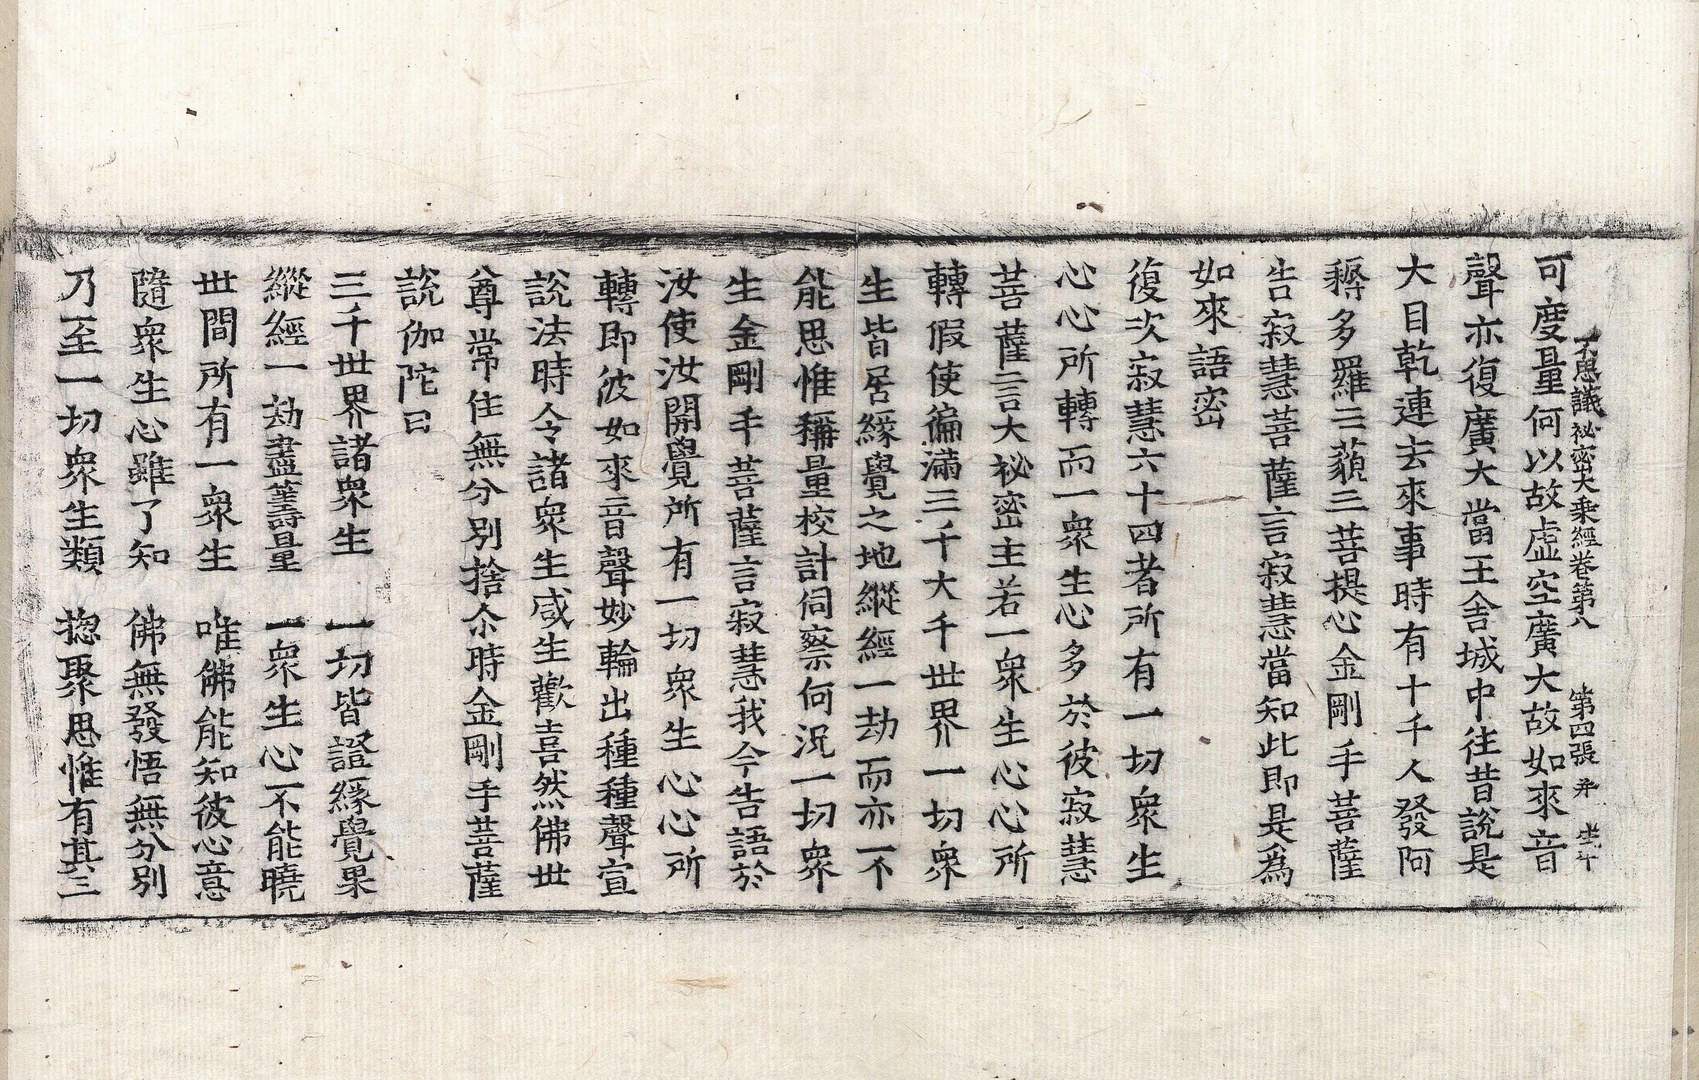 不思議祕密大乘經卷第八 第四張
可度量何以故虛空廣大故如來音
聲亦復廣大當王舍城中往昔說是
大目乾連去來事時有十千人發阿
耨多羅三藐三菩提心金剛手菩薩
告寂慧菩薩言寂慧當知此即是為
如來語密
復次寂慧六十四者所有一切衆生
心心所轉而一衆生心多於彼寂慧
菩薩言大祕密主若一衆生心心所
轉假使徧滿三千大千世界一切衆
生皆居緣覺之地縱經一劫而亦不
能思惟稱量校計伺察何況一切衆
生金剛手菩薩言寂慧我今告語於
汝使汝開覺所有一切衆生心心所
轉即彼如來音聲妙輪出種種聲宣
說法時令諸衆生咸生歡喜然佛世
尊常住無分別捨尒時金剛手菩薩
說伽陀曰
三千世界諸衆生 一切皆證緣覺果
縱經一劫盡籌量 一衆生心不能曉
世間所有一衆生 唯佛能知彼心意
隨衆生心雖了知 佛無發悟無分別
乃至一切衆生類 揔聚思惟有其三